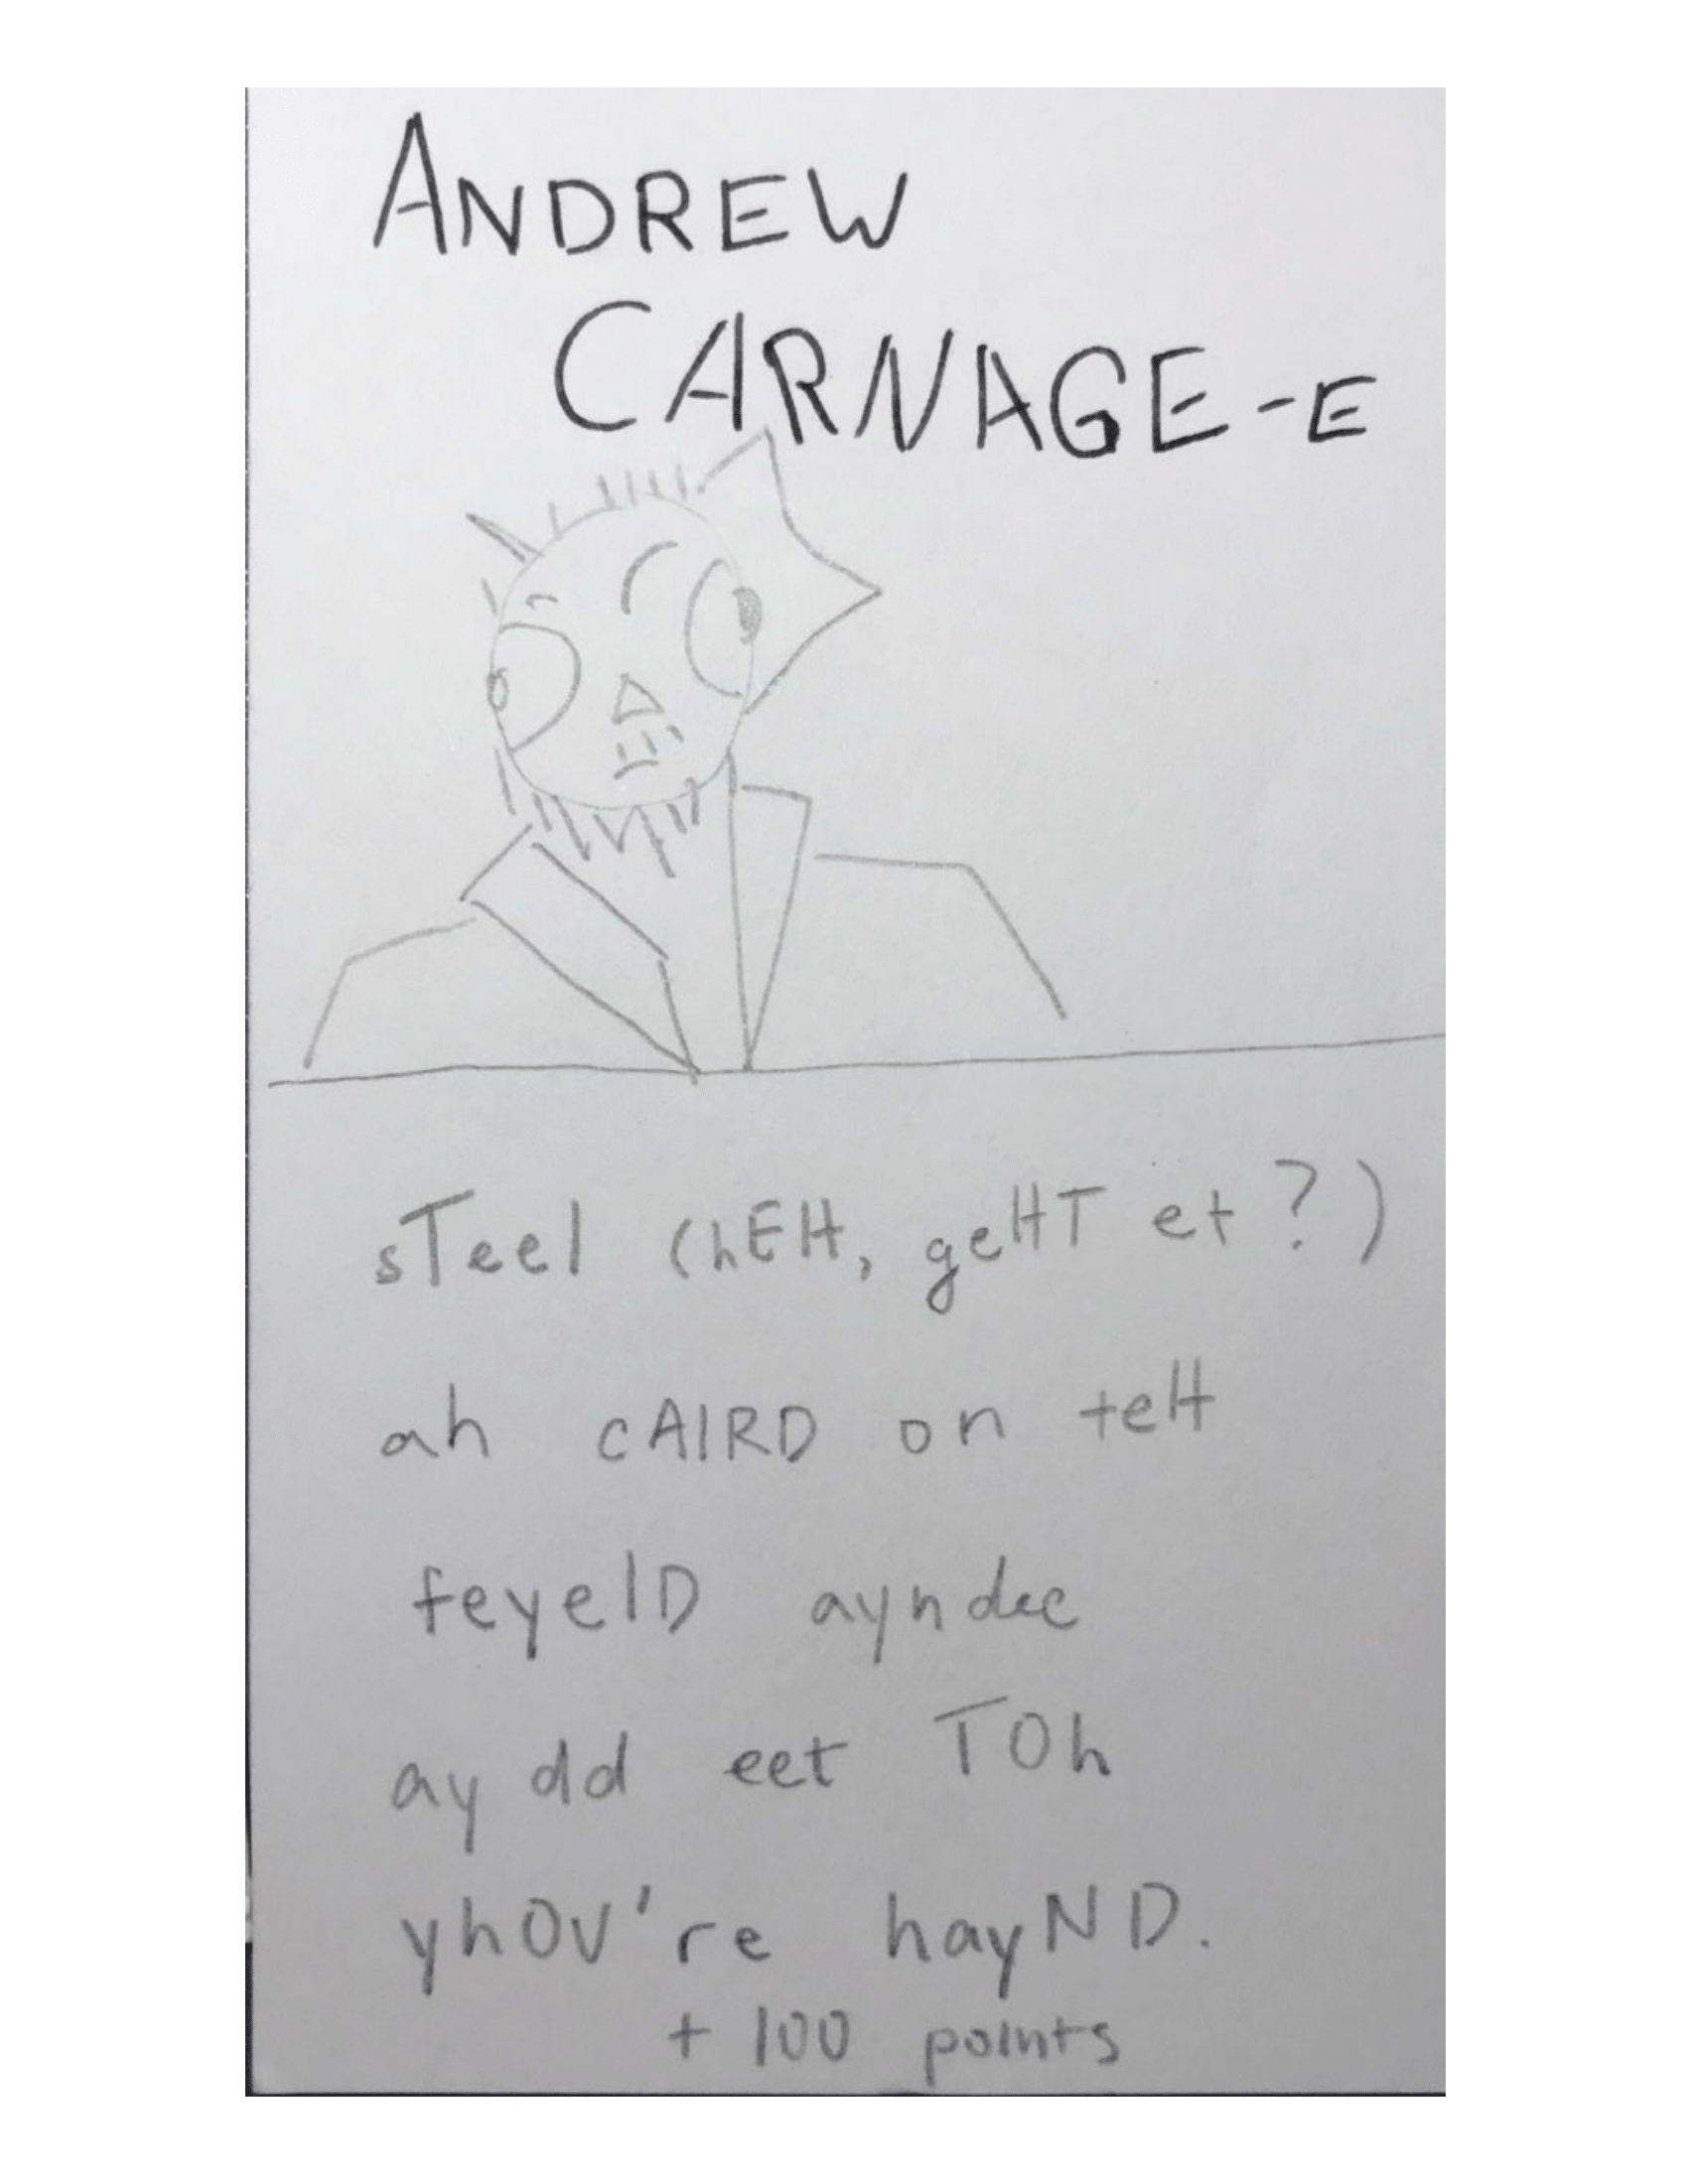 ANDREW
CARNAGE-E
sTeel (hEH, geHT et?)
ah cAIRD on teH
feyelD ayndee
aydd eet TOh
yhOU're hayND.
+ 100 points